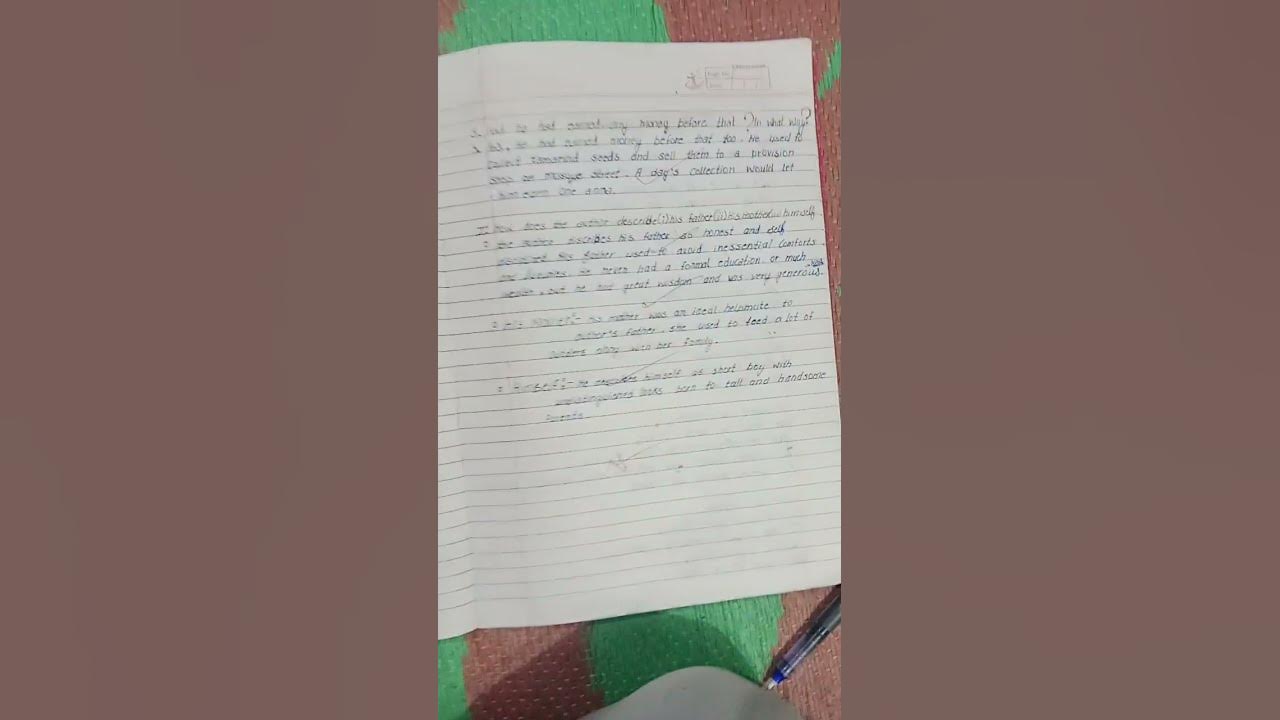 Page No.
Date
had he had earned any money before that ? In what way?
Yes, he had earned money before that too. He used to
collect Tamarind seeds and sell them to a provision
shop on mosque street. A day's collection would let
him earn one anna.
II How does the author describe (i) his father (ii) his mother himself
The author discribes his father as honest and self
disciplined his father used to avoid inessential comforts
and luxuries. He never had a formal education or much
wealth, but he had great wisdom and was very generous.
his mother was an ideal helpmate to
author's father. She used to feed a lot of
outsiders along with her family.
Himself :- he describes himself as short boy with
undistinguished looks born to tall and handsome
parents